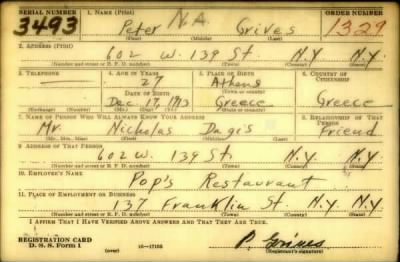 SERIAL NUMBER 1. NAME (Print) ORDER NUMBER
3493 Peter N.A. Grives 1329
(First) (Middle) (Last)
2. ADDRESS (Print)
602 W. 139 St. N.Y N.Y.
(Number and street or R. F. D. number) (Town) (County) (State)
3. TELEPHONE 4. AGE IN YEARS 5. PLACE OF BIRTH 6. COUNTRY OF CITIZENSHIP
27 Athens
DATE OF BIRTH (Town or county)
Dec. 17, 1913 Greece Greece
(Exchange) (Number) (Mo.) (Day) (Yr.) (State or country)
7. NAME OF PERSON WHO WILL ALWAYS KNOW YOUR ADDRESS 8. RELATIONSHIP OF THAT PERSON
Mr. Nicholas Dagis Friend
(Mr., Mrs., Miss) (First) (Middle) (Last)
9. ADDRESS OF THAT PERSON
602 W. 139 St N.Y. N.Y.
(Number and street or R. F. D. number) (Town) (County) (State)
10. EMPLOYER'S NAME
Pop's Restaurant
11. PLACE OF EMPLOYMENT OR BUSINESS
137 Franklin St. N.Y. N.Y.
(Number and street or R. F. D. number) (Town) (County) (State)
I AFFIRM THAT I HAVE VERIFIED ABOVE ANSWERS AND THAT THEY ARE TRUE.
REGISTRATION CARD
D. S. S. Form 1 (over) 16—17105 P. Grives
(Registrant's signature)